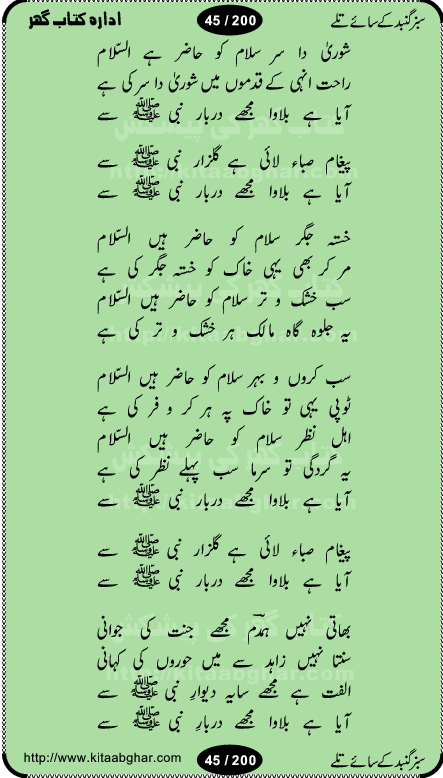 سبز گنبد کے سائے تلے 45 / 200 ادارہ کتاب گھر
شوریٰ دا سر سلام کو حاضر ہے السّلام
راحت انہی کے قدموں میں شوریٰ دا سر کی ہے
آیا ہے بلاوا مجھے دربار نبی ﷺ سے
پیغام صباء لائی ہے گلزار نبی ﷺ سے
آیا ہے بلاوا مجھے دربار نبی ﷺ سے
خستہ جگر سلام کو حاضر ہیں السّلام
مر کر بھی یہی خاک کو خستہ جگر کی ہے
سب خشک و تر سلام کو حاضر ہیں السّلام
یہ جلوہ گاہ مالک ہر خشک و تر کی ہے
سب کروں و بہر سلام کو حاضر ہیں السّلام
ٹوپی یہی تو خاک پہ ہر کر و فر کی ہے
اہل نظر سلام کو حاضر ہیں السّلام
یہ گردگی تو سرما سب پہلے نظر کی ہے
آیا ہے بلاوا مجھے دربار نبی ﷺ سے
پیغام صباء لائی ہے گلزار نبی ﷺ سے
آیا ہے بلاوا مجھے دربار نبی ﷺ سے
بھاتی نہیں ہمدؔم مجھے جنت کی جوانی
سنتا نہیں زاہد سے میں حوروں کی کہانی
الفت ہے مجھے سایہ دیوارِ نبی ﷺ سے
آیا ہے بلاوا مجھے دربارِ نبی ﷺ سے
سبز گنبد کے سائے تلے 45 / 200 http://www.kitaabghar.com